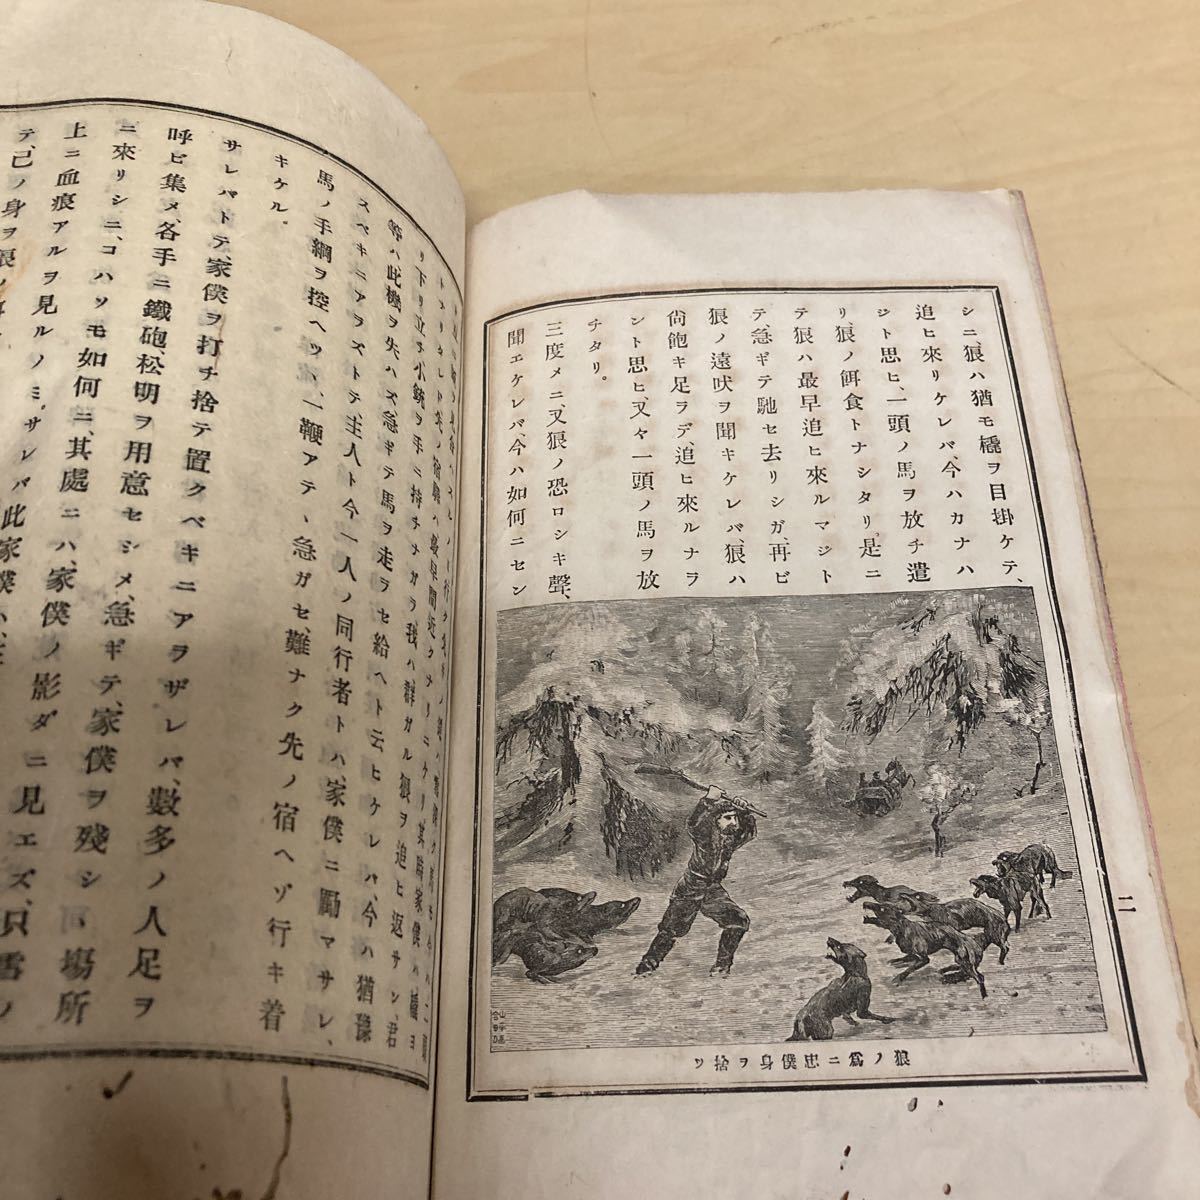 シニ、狼ハ猶モ橇ヲ目掛ケテ、
追ヒ來リケレバ、今ハカナハ
ジト思ヒ、一頭ノ馬ヲ放チ遣
リ狼ノ餌食トナシタリ。是ニ
テ狼ハ最早追ヒ來ルマジト
テ、急ギテ馳セ去リシガ、再ビ
狼ノ遠吠ヲ聞キケレバ、狼ハ
尙飽キ足ラデ、追ヒ來ルナラ
ント思ヒ、又々一頭ノ馬ヲ放
チタリ。
三度メニ又狼ノ恐ロシキ聲、
聞エケレバ、今ハ如何ニセン
狼ノ爲ニ忠僕身ヲ捨ツ
二
リ下リ立チ小銃ヲ手ニ持チナガラ、我ハ群ガル狼ヲ追ヒ返サン、君
等ハ此機ヲ失ハズ急ギテ馬ヲ走ラセ給ヘト云ヒケレバ、今ハ猶豫
スベキニアラズトテ、主人ト今一人ノ同行者トハ、家僕ニ勵マサレ、
馬ノ手綱ヲ控ヘツヽ、一鞭アテヽ、急ガセ、難ナク先ノ宿ヘゾ行キ着
キケル。
サレバトテ、家僕ヲ打チ捨テ置クベキニアラザレバ、數多ノ人足ヲ
呼ビ集メ、各手ニ鐵砲、松明ヲ用意セシメ、急ギテ、家僕ヲ殘シ 場所
ニ來リシニ、コハソモ如何ニ、其處ニハ、家僕ノ影ダニ見エズ、只雪ノ
上ニ血痕アルヲ見ルノミ。サレバ此家僕ハ、
テ、己ノ身ヲ狼ノ